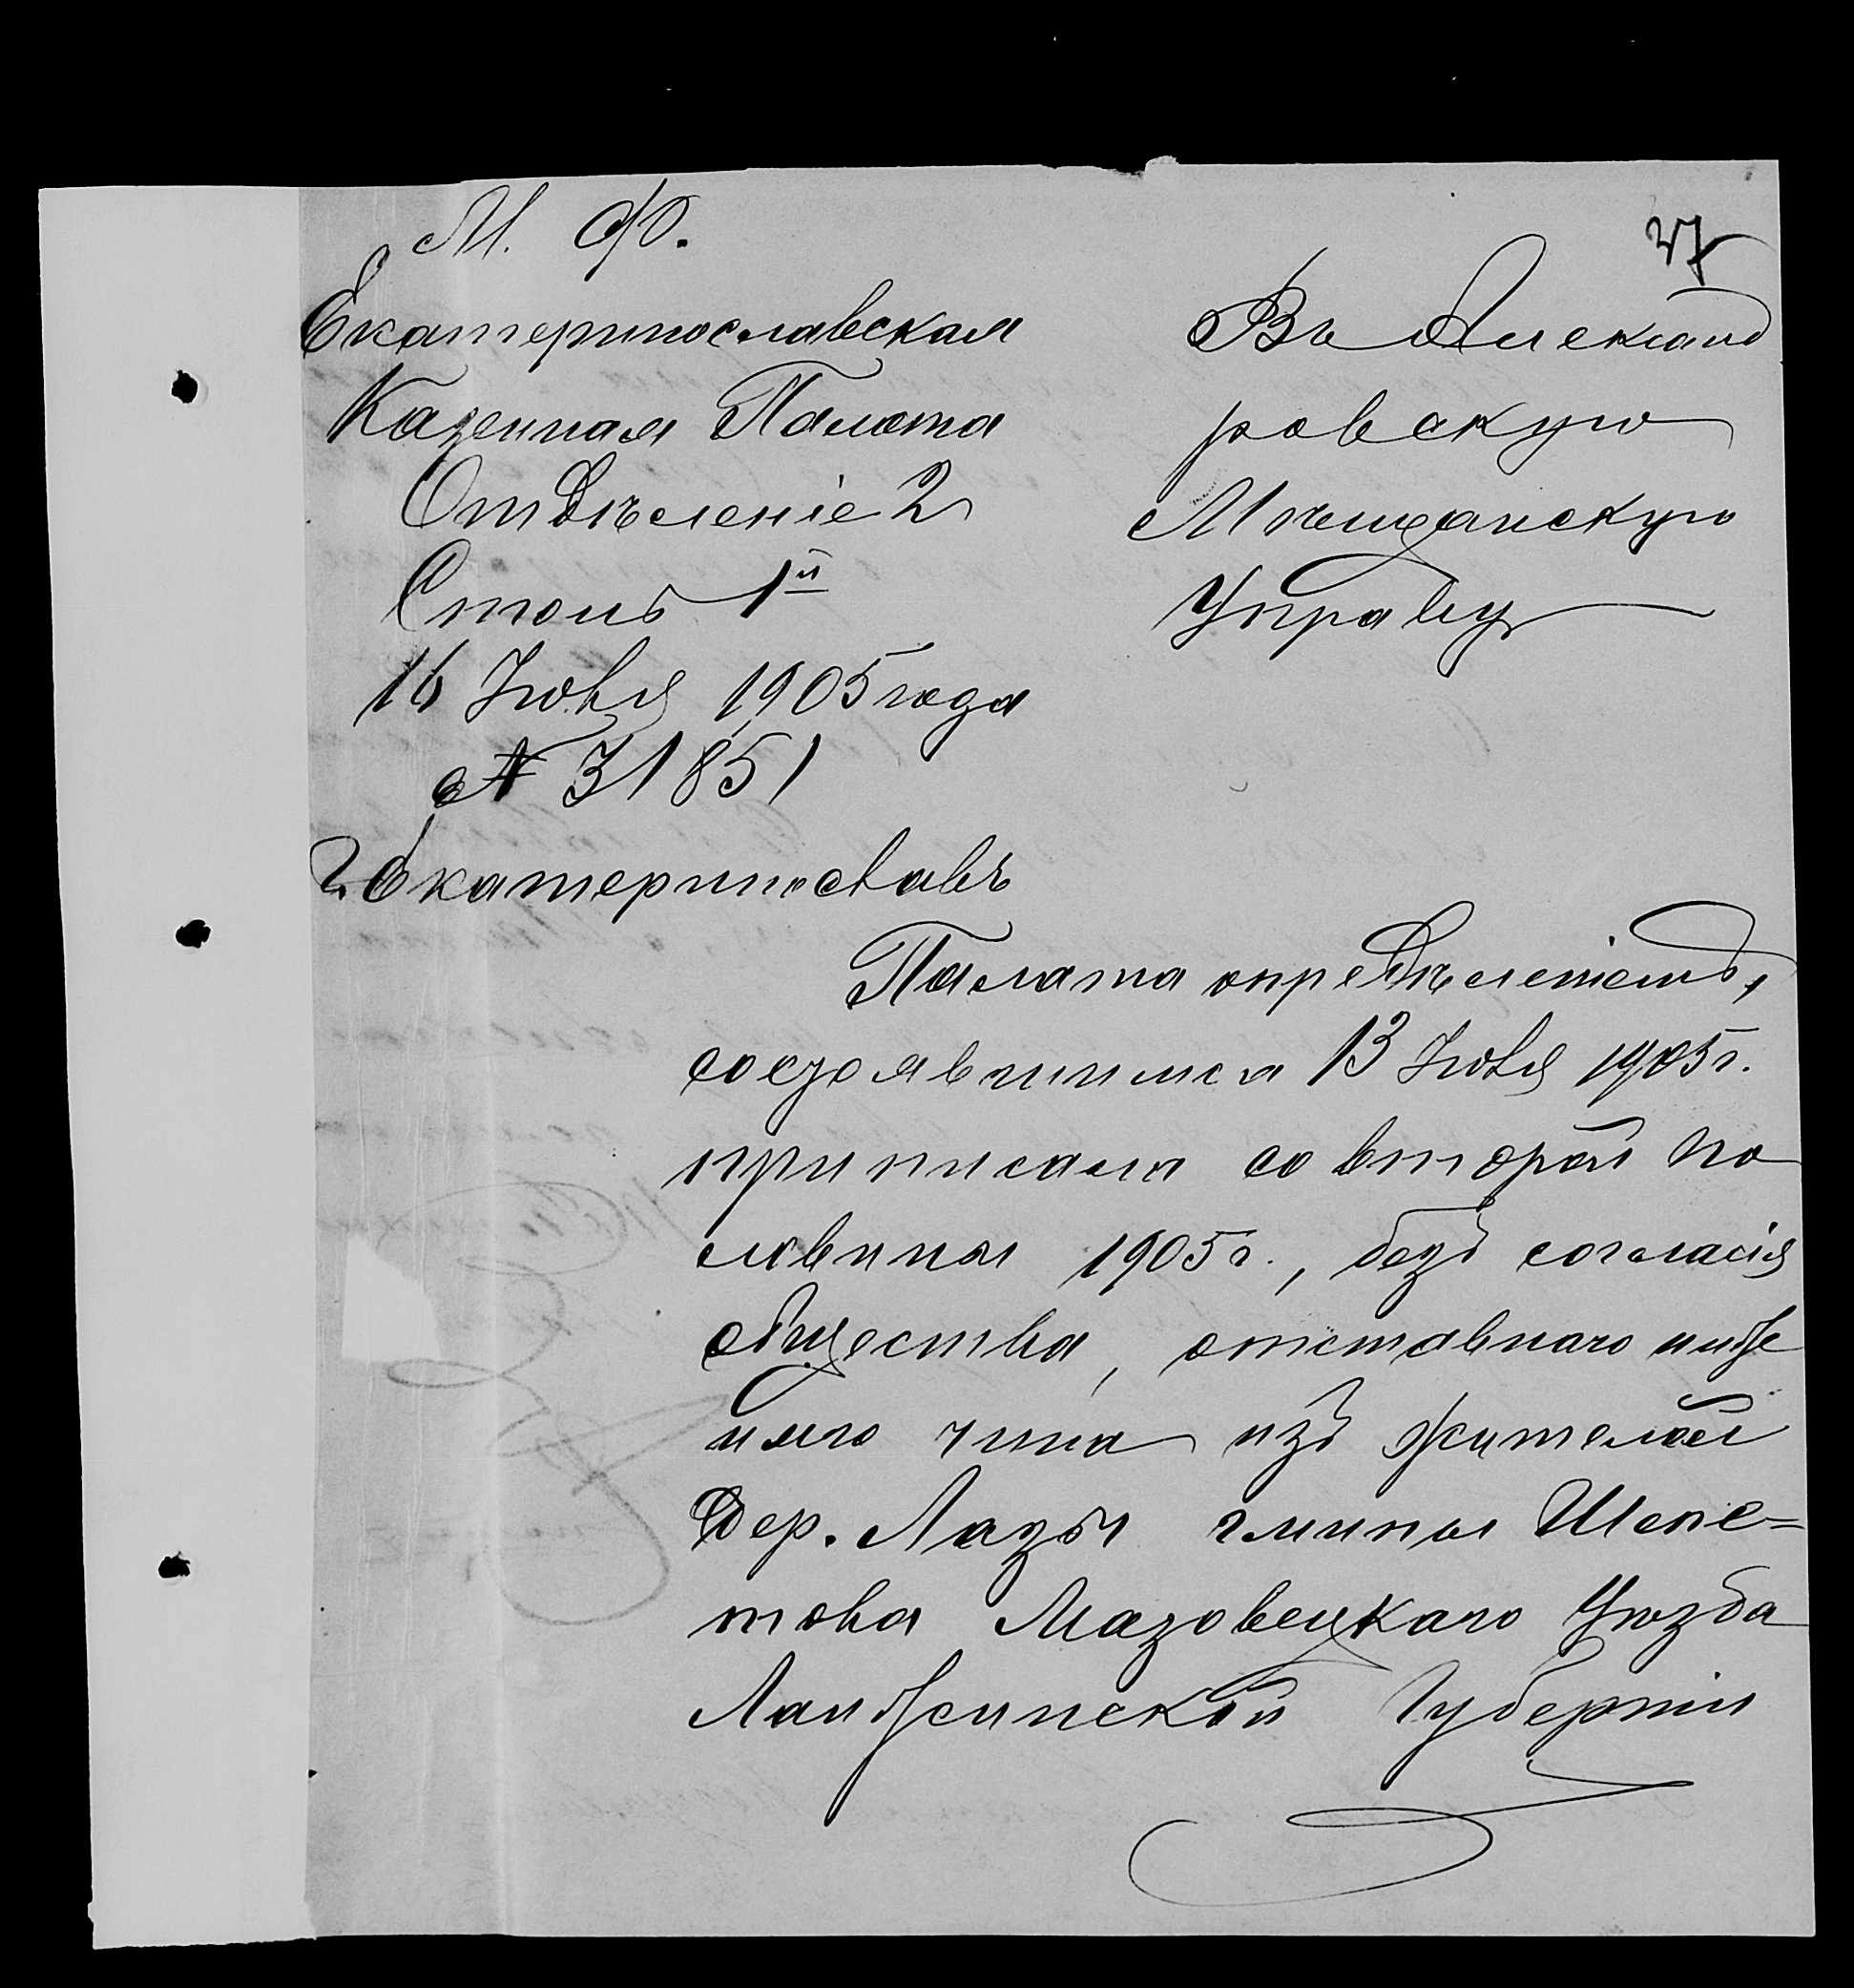 М. Ф.
27
Екатеринославская
Казенная Палата
Отдѣленіе 2
Столъ 1й
16 Іюля 1905 года
№ 31851
г. Екатеринославъ
Въ Александ
ровскую
Мѣщанскую
Управу
Палата опредѣленіемъ,
состоявшимся 13 Іюля 1905 г.
приписала со второй по
ловины 1905 г., безъ согласія
общества, отставного ниж
няго чина изъ жителей
дер. Лазы гмины Шепе=
това Мазовецкаго Уѣзда
Ломжинской Губерніи